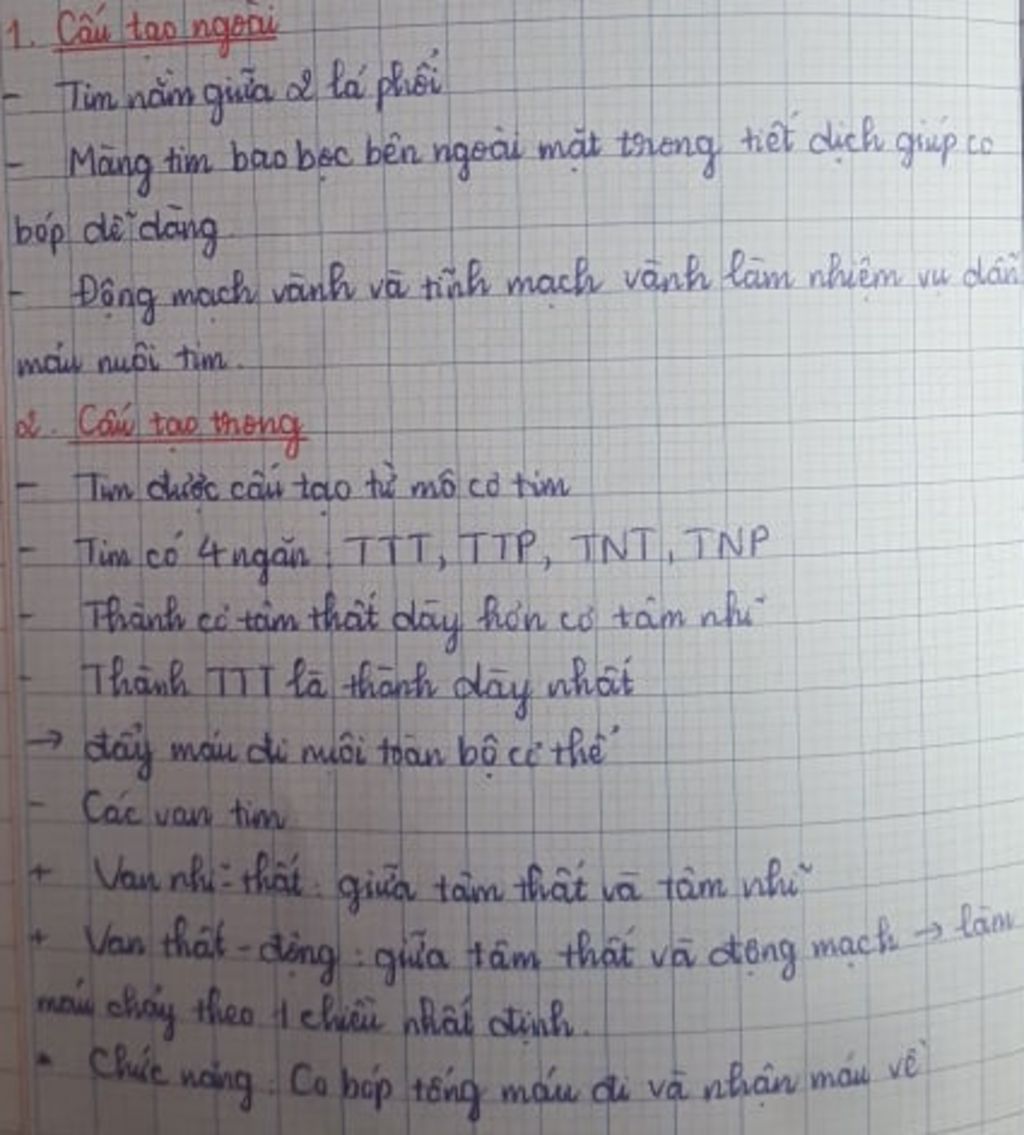 1. Cấu tạo ngoài
- Tim nằm giữa 2 lá phổi
- Màng tim bao bọc bên ngoài mặt trong tiết dịch giúp co
bóp dễ dàng
- Động mạch vành và tĩnh mạch vành làm nhiệm vụ dẫn
máu nuôi tim.
2. Cấu tạo trong
- Tim được cấu tạo từ mô cơ tim
- Tim có 4 ngăn: TTT, TTP, TNT, TNP
- Thành cơ tâm thất dày hơn cơ tâm nhĩ
- Thành TTT là thành dày nhất
→ đẩy máu đi nuôi toàn bộ cơ thể
- Các van tim
+ Van nhĩ-thất: giữa tâm thất và tâm nhĩ
+ Van thất-động: giữa tâm thất và động mạch → làm
máu chảy theo 1 chiều nhất định.
• Chức năng: Co bóp tống máu đi và nhận máu về